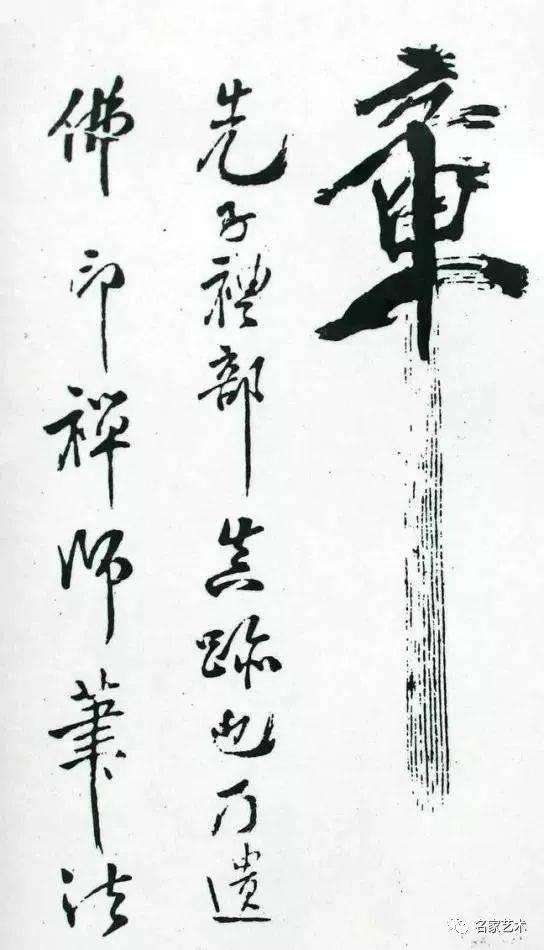 章
先子禮部真跡也乃遺
佛印禪師筆法
名家艺术